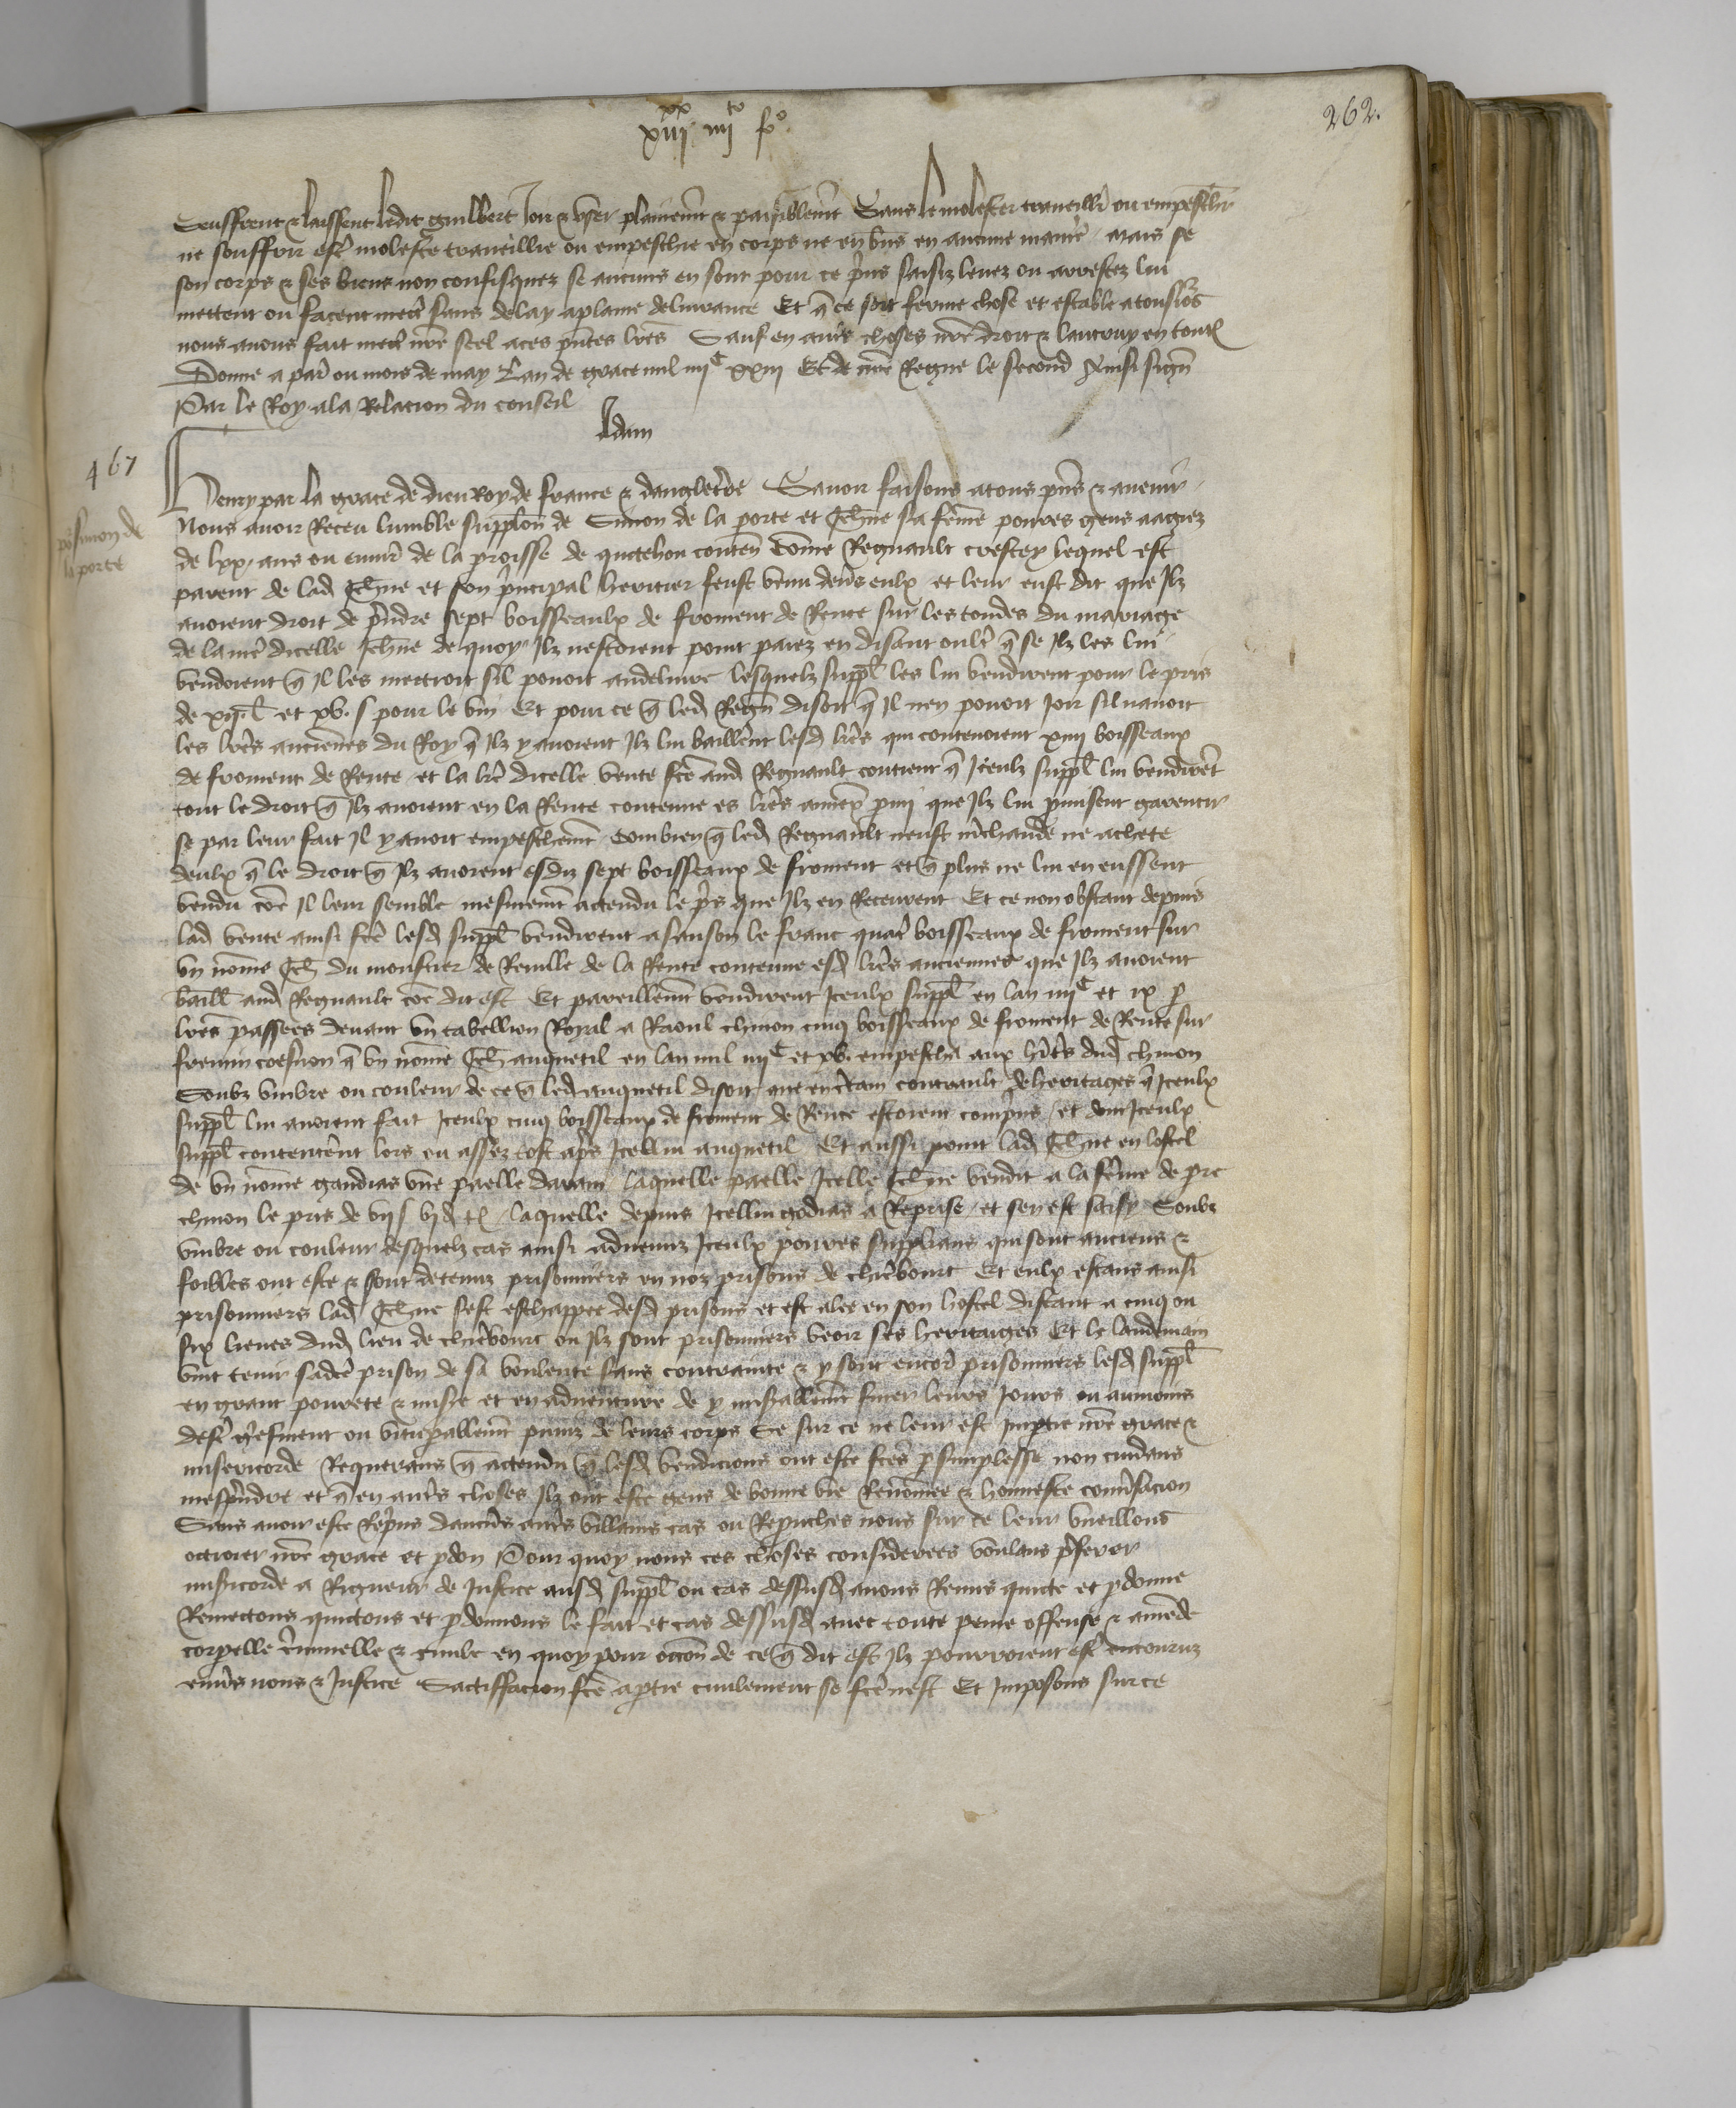 xiiii iiii to fo
262.
Seuffrent & laissent ledit guilbert Joir & user plainemt & paisiblemt Sans le molester traveillr ou empeschr
ne souffrir estr molesté traveillié ou empesché en corps ne en bns en aucune manie Mais se
son corps & ses biens non confisquez se aucuns en sont pour ce prins saisiz levez ou arrestez lui
mettent ou facent mett sans delay a plaine delivrance Et q ce soit ferme chose et estable a tousiours
nous avons fait mett nre seel a ces pntes lres Sauf en autrs choses nre droit & lautruy en toutes
Donne a par ou mois de may Lan de grace mil iiiic xxiii Et de nre Regne le second Ainsi signe
Par le Roy a la Relacion du conseil
Adam
467
po simon de
la porte
Henry par la grace de dieu Roy de france & dangleterre Savoir faisons a tous pns & avenir
Nous avoir Receu lumble supplon de Simon de la porte et Jehne sa femme povres gens aagiez
de lxx ans ou environ de la proisse de quetehou conten Comme Regnault crestey lequel est
parent de lad Jehne et son principal heritier feust venu devs eulx et leur eust dit que Jlz
avoient droit de prendre sept boisseaulx de froment de Rente sur les condes du mariage
de la mere dicelle Jehne de quoy Jlz nestoient point paiez en disant oultr q se Jlz les lui
vendoient q Il les mettroit sil povoit au delivre lesquelz suppl les lui vendirent pour le pris
de xij l et xv s pour le vin Et pour ce q led Regn disoit q Il nen povoit Joir sil navoit
les lres anciennes du Roy q Jlz y avoient Jlz lui baillrent lesd lres qui contenoient xiiii boisseaux
de froment de Rente et la lre dicelle vente fce aud Regnault contient q Iceulx suppl lui vendirent
tout le droit q Jlz avoient en la Rente contenue es lres que Jlz lui pmisent garentir
se par leur fait Il y avoit empeschemt Combien q led Regnault neust mchandé ne acheté
deulx q le droit q Jlz avoient esdiz sept boisseaux de froment et q plus ne lui en eussent
vendu coe Il leur semble mesmemt actendu le pris que Jlz en Receurent Et ce non obstant depuis
lad vente ainsi fce lesd suppl vendirent a sanson le franc quatr boisseaux de froment sur
un nomme Jeh du monstier de Reville de la Rente contenue esd lres anciennes que Jlz avoient
baill aud Regnault coe dit est Et pareillemt vendirent Iceulx suppl en lan iiiic et ix p
lres passees devant un tabellion Royal a Raoul chmon cinq boisseaux de froment de Rente sur
q un nomme Jeh anquetil en lan mil iiiic et xv empescha aux hoirs dud chmon
Soubz umbre ou couleur de ce q led anquetil disoit que en ctain contrault de heritages q Iceulx
suppl lui avoient fait Iceulx cinq boisseaux de froment de Rente estoient comprins et dont Iceulx
suppl contentrent lors ou assez tost aprs Icellui anquetil Et aussi print lad Jehne en lostel
de un nomme gaudias une paelle darain laquelle paelle Icelle Jehne vendit a la femme de pre
chmon le pris de vii s vi d t laquelle depuis Icellui godias a Reprise et sen est saisy Soubz
umbre ou couleur desquelz cas ainsi advenuz Iceulx povres supplians qui sont anciens &
foibles ont esté & sont detenuz prisonniers en noz prisons de chierbourt Et eulx estans ainsi
prisonniers lad Jehne sest eschappee desd prisons et est alee en son hostel distant a cinq ou
six lieues dud lieu de chierbourt ou Jlz sont prisonniers veoir ses heritaiges Et le landemain
vint tenir sadce prison de sa voulente sans contrainte & y sont encore prisonniers lesd suppl
en grant povrete & misere et en adventure de y misablemt finer leurs Jours ou aumoins
destr griefment ou vitupablemt puniz de leurs corps Se sur ce ne leur est Imptie nre grace &
misericorde Requerans q actendu q lesd vendicions ont este fces p simplesse non cuidans
mesprendre et q en autrs choses Jlz ont este gens de bonne vie Renommee & honneste conversacion
Sans avoir este Repris daucuns autrs villains cas ou Reprouches nous sur ce leur vueillons
octroier nre grace et pdon Pour quoy nous ces choses considerees voulans preferer
misericorde a Rigueur de Justice ausd suppl ou cas dessusd avons Remis quicte et pdonne
Remectons quictons et pdonnons le fait et cas dessusd avec toute peine offense & amende
corpelle criminelle & civile en quoy pour occon de ce q dit est Jlz pourroient estr encouruz
envers nous & Justice Sactiffacion fce a ptie civilement se fce nest Et Imposons sur ce